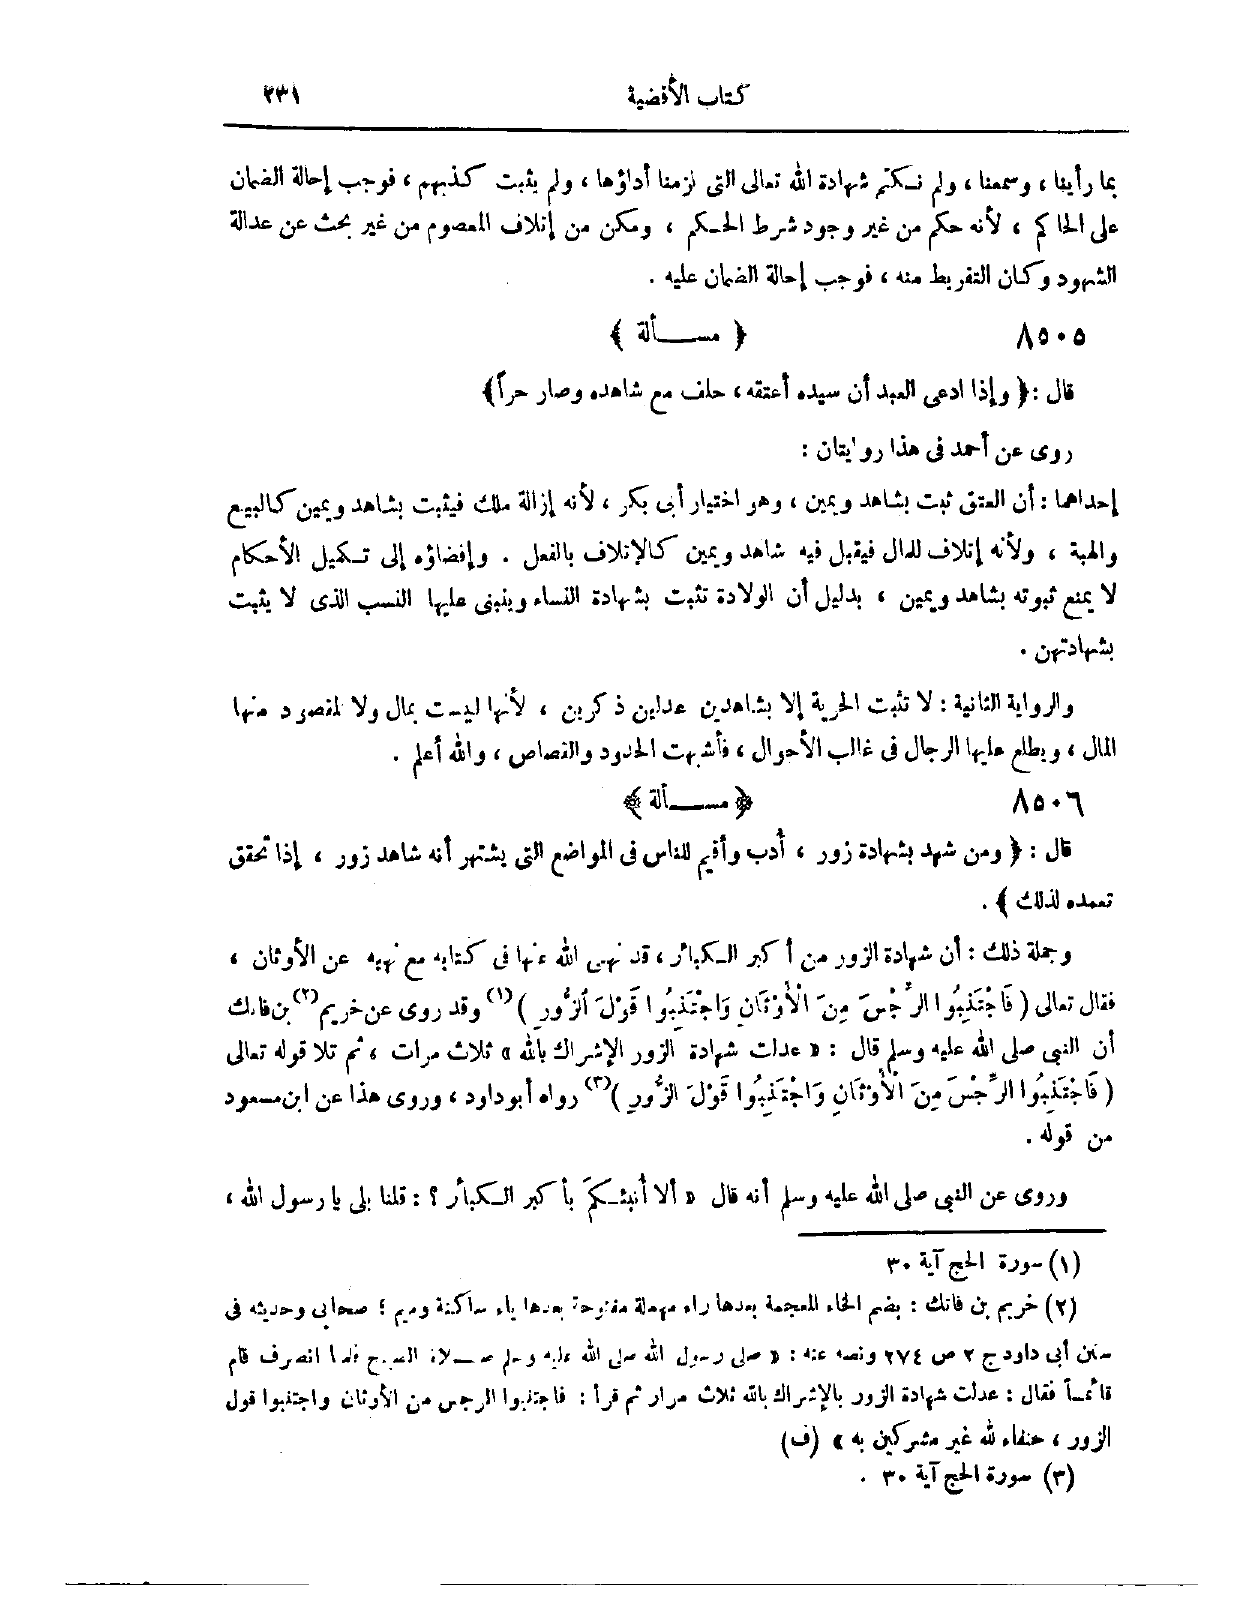 كتاب الأقضية ٢٣١
بما رأينا ، وسمعنا ، ولم نكتم شهادة الله تعالى التى لزمنا أداؤها ، ولم يثبت كذبهم ، فوجب إحالة الضمان
على الحاكم ، لأنه حكم من غير وجود شرط الحكم ، ومكن من إتلاف المعصوم من غير بحث عن عدالة
الشهود وكان التفريط منه ، فوجب إحالة الضمان عليه .
٨٥٠٥ ﴿ مســألة ﴾
قال : ﴿ وإذا ادعى العبد أن سيده أعتقه ، حلف مع شاهده وصار حراً ﴾
روى عن أحمد فى هذا روايتان :
إحداهما : أن العتق ثبت بشاهد ويمين ، وهو اختيار أبى بكر ، لأنه إزالة ملك فيثبت بشاهد ويمين كالبيع
والهبة ، ولأنه إتلاف للمال فيقبل فيه شاهد ويمين كالإتلاف بالفعل . وإفضاؤه إلى تكميل الأحكام
لا يمنع ثبوته بشاهد ويمين ، بدليل أن الولادة تثبت بشهادة النساء وينبنى عليها النسب الذى لا يثبت
بشهادتهن .
والرواية الثانية : لا تثبت الحرية إلا بشاهدين عدلين ذكرين ، لأنها ليست بمال ولا المقصود منها
المال ، ويطلع عليها الرجال فى غالب الأحوال ، فأشبهت الحدود والقصاص ، والله أعلم .
٨٥٠٦ ﴿ مســألة ﴾
قال : ﴿ ومن شهد بشهادة زور ، أُدب وأقيم للناس فى المواضع التى يشتهر أنه شاهد زور ، إذا تحقق
تعمده لذلك ﴾ .
وجملة ذلك : أن شهادة الزور من أكبر الكبائر ، قد نهى الله عنها فى كتابه مع نهيه عن الأوثان ،
فقال تعالى ( فَاجْتَنِبُوا الرِّجْسَ مِنَ الْأَوْثَانِ وَاجْتَنِبُوا قَوْلَ الزُّورِ )(١) وقد روى عن خريم(٢) بن فاتك
أن النبى صلى الله عليه وسلم قال : « عدلت شهادة الزور الإشراك بالله » ثلاث مرات ، ثم تلا قوله تعالى
( فَاجْتَنِبُوا الرِّجْسَ مِنَ الْأَوْثَانِ وَاجْتَنِبُوا قَوْلَ الزُّورِ )(٣) رواه أبو داود ، وروى هذا عن ابن مسعود
من قوله .
وروى عن النبى صلى الله عليه وسلم أنه قال « ألا أُنبئكم بأكبر الكبائر ؟ : قلنا بلى يا رسول الله ،
(١) سورة الحج آية ٣٠
(٢) خريم بن فاتك : بضم الخاء المعجمة بعدها راء مهملة مفتوحة بعدها ياء ساكنة وميم ؛ صحابى وحديثه فى
سنن أبى داود ج ٢ ص ٢٧٤ ونصه عنه : « صلى رسول الله صلى الله عليه وسلم صــلاة الصبح فلما انصرف قام
قائماً فقال : عدلت شهادة الزور بالإشراك بالله ثلاث مرار ثم قرأ : فاجتنبوا الرجس من الأوثان واجتنبوا قول
الزور ، حنفاء لله غير مشركين به » (ف)
(٣) سورة الحج آية ٣٠ .